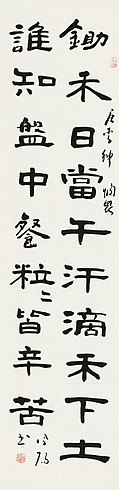 鋤禾日當午汗滴禾下土
誰知盤中餐粒〻皆辛苦
唐李紳憫農